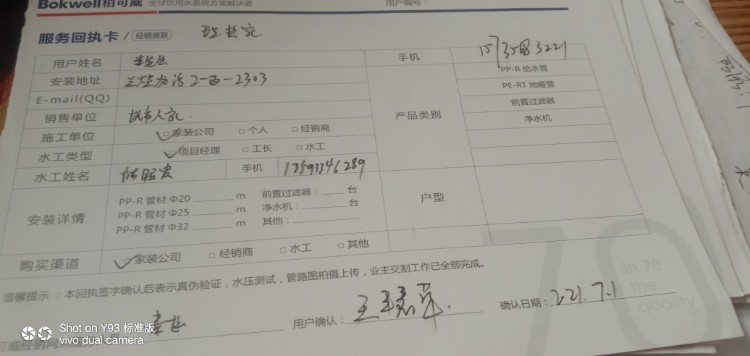 Bokwell柏可威 全球饮用水系统方案解决者 用户编号
服务回执卡 / 经销商联
用户姓名 手机
安装地址 2-西-2303 PP-R 给水管
E-mail(QQ) PE-RT 地暖管
销售单位 产品类别 前置过滤器
施工单位 ✓家装公司 □个人 □经销商 净水机
水工类型 ✓项目经理 □工长 □水工
水工姓名 手机 13593346289
安装详情 PP-R 管材 Φ20 m 前置过滤器: 台 户型
PP-R 管材 Φ25 m 净水机: 台
PP-R 管材 Φ32 m 其他:
购买渠道 ✓家装公司 □经销商 □水工 □其他
温馨提示:本回执签字确认后表示真伪验证,水压测试,管路图拍摄上传,业主交割工作已全部完成。
in 70
the
quality
用户确认: 确认日期: 221.7.1
Shot on Y93 标准版
vivo dual camera